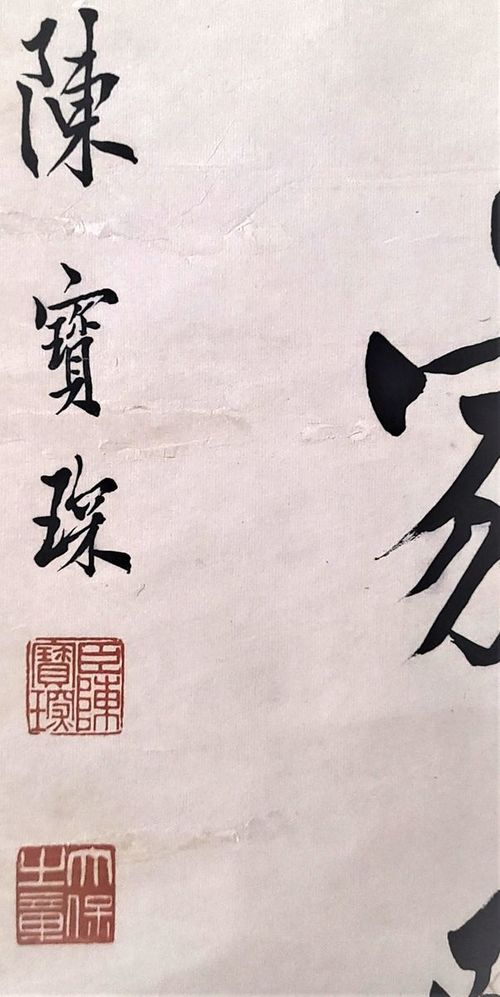 陳寶琛
臣陳
寶琛
太保
之章